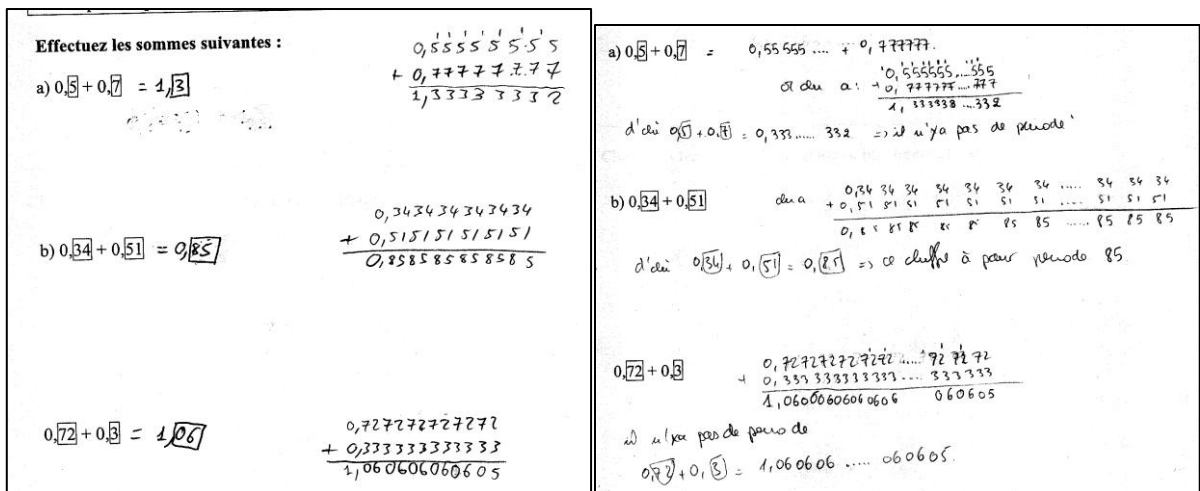 Effectuez les sommes suivantes :
a) 0,5 + 0,7 = 1,3
0,5555555
+ 0,7777777
1,33333332
b) 0,34 + 0,51 = 0,85
0,343434343434
+ 0,515151515151
0,858585858585
0,72 + 0,3 = 1,06
0,727272727272
+ 0,333333333333
1,060606060605
a) 0,5 + 0,7 = 0,55555.... + 0,777777.
0,555555....555
+ 0,777777....777
1,333333...332
d'où 0,5 + 0,7 = 0,333..... 332 => il n'y a pas de période
b) 0,34 + 0,51
on a
0,34 34 34 34 34 34 34 ..... 34 34 34
+ 0,51 51 51 51 51 51 51 .... 51 51 51
0,85 85 85 85 85 85 85 ..... 85 85 85
d'où 0,34 + 0,51 = 0,85 => ce chiffre à pour période 85
0,72 + 0,3
0,727272727272 ..... 72 72 72
+ 0,333333333333 .... 333333
1,06000606060606 060605
il n'y a pas de période
0,72 + 0,3 = 1,060606 ..... 060605.